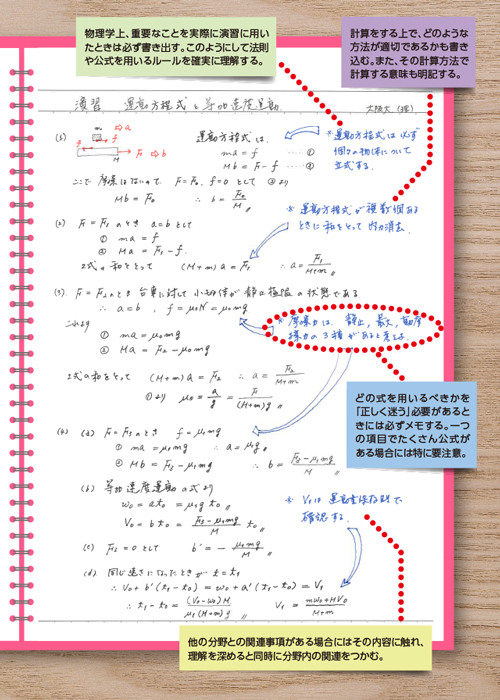 物理学上、重要なことを実際に演習に用い
たときは必ず書き出す。このようにして法則
や公式を用いるルールを確実に理解する。
計算をする上で、どのような
方法が適切であるかも書き
込む。また、その計算方法で
計算する意味も明記する。
演習 運動方程式と等加速度運動
大阪大(理)
(1) m ⇨a
f
f
M F ⇨b
運動方程式は、
ma = f ―― ①
Mb = F - f ―― ②
※ 運動方程式は必ず
個々の物体について
立式する。
ここで 摩擦はないので F = F0, f = 0 として ②より
Mb = F0 ∴ b = F0/M
(2) F = F1 のとき a = b として
① ma = f
② Ma = F1 - f
2式の和をとって (M+m)a = F1 ∴ a = F1/(M+m)
※ 運動方程式が複数個ある
ときに和をとって 内力消去。
(3) F = F2 のとき 台車に対して小物体が静止極限の状態である
∴ a = b, f = μ0N = μ0mg
これより
① ma = μ0mg
② Ma = F2 - μ0mg
※ 摩擦力は、静止、最大、動摩
擦力の3種があると考える
2式の和をとって (M+m)a = F2 ∴ a = F2/(M+m)
①より μ0 = a/g = F/((M+m)g)
どの式を用いるべきかを
「正しく迷う」必要があると
きには必ずメモする。一つ
の項目でたくさん公式が
ある場合には特に要注意。
(4) (a) F = F3 のとき f = μ1mg
① ma = μ1mg ∴ a = μ1g
② Mb = F3 - μ1mg ∴ b = (F3 - μ1mg)/M
(b) 等加速度運動の式より
w0 = at0 = μ1gt0
V0 = bt0 = (F3 - μ1mg)/M t0
※ V1は 運動量保存則で
確認する。
(c) F3 = 0 として b' = - μ1mg/M
(d) 同じ速さになったときが t = t1
∴ V0 + b'(t1 - t0) = w0 + a'(t1 - t0) = V1
∴ t1 - t0 = (V0 - w0)M/(μ1(M+m)g) V1 = (mw0 + MV0)/(M+m)
他の分野との関連事項がある場合にはその内容に触れ、
理解を深めると同時に分野内の関連をつかむ。